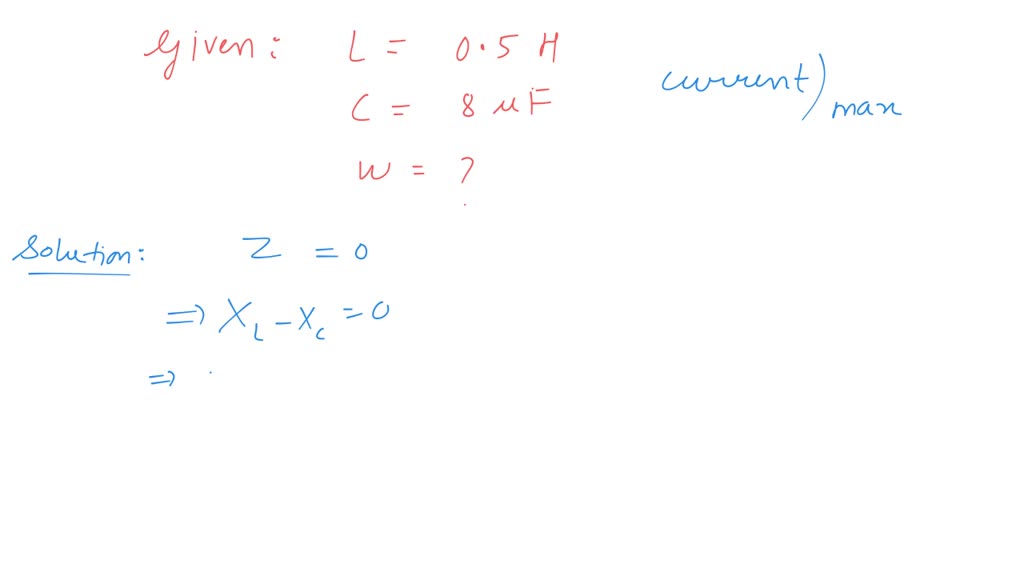 Given: L = 0.5 H
C = 8 μF
W = ?
current) max
Solution: Z = 0
⇒ X_L - X_C = 0
⇒